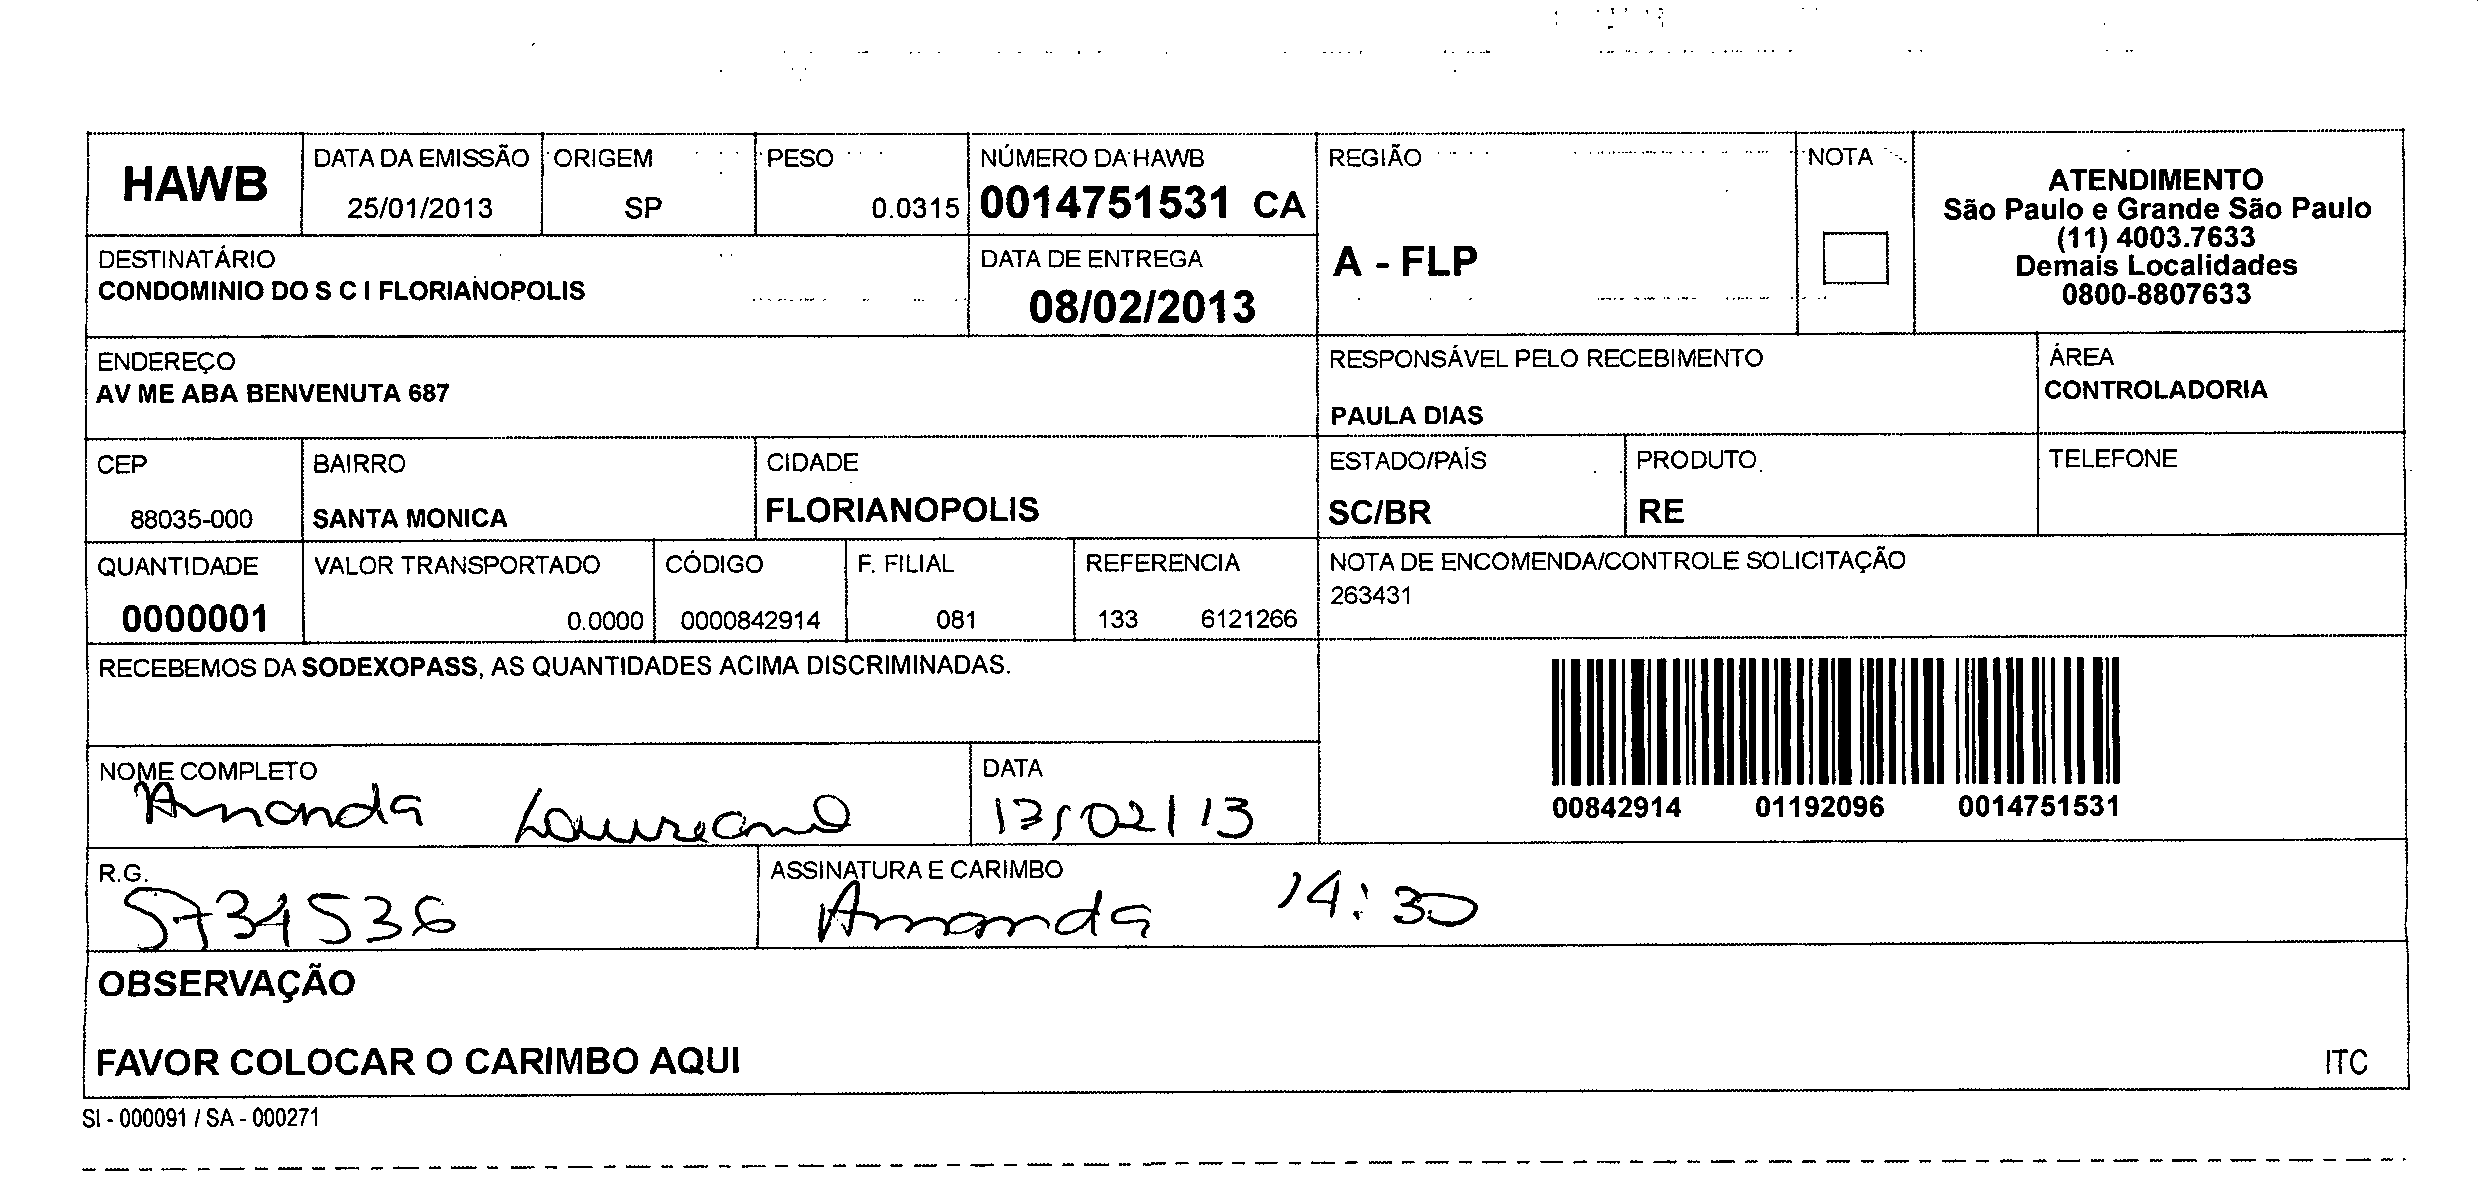 HAWB
DATA DA EMISSÃO
25/01/2013
ORIGEM
SP
PESO
0.0315
NÚMERO DA HAWB
0014751531 CA
REGIÃO
A - FLP
NOTA
ATENDIMENTO
São Paulo e Grande São Paulo
(11) 4003.7633
Demais Localidades
0800-8807633
DESTINATÁRIO
CONDOMINIO DO S C I FLORIANOPOLIS
DATA DE ENTREGA
08/02/2013
ENDEREÇO
AV ME ABA BENVENUTA 687
RESPONSÁVEL PELO RECEBIMENTO
PAULA DIAS
ÁREA
CONTROLADORIA
CEP
88035-000
BAIRRO
SANTA MONICA
CIDADE
FLORIANOPOLIS
ESTADO/PAÍS
SC/BR
PRODUTO
RE
TELEFONE
QUANTIDADE
0000001
VALOR TRANSPORTADO
0.0000
CÓDIGO
0000842914
F. FILIAL
081
REFERENCIA
133 6121266
NOTA DE ENCOMENDA/CONTROLE SOLICITAÇÃO
263431
RECEBEMOS DA SODEXOPASS, AS QUANTIDADES ACIMA DISCRIMINADAS.
00842914 01192096 0014751531
NOME COMPLETO
Amanda Laureano
DATA
13/02/13
R.G.
5734536
ASSINATURA E CARIMBO
Amanda 14:30
OBSERVAÇÃO
FAVOR COLOCAR O CARIMBO AQUI
ITC
SI - 000091 / SA - 000271